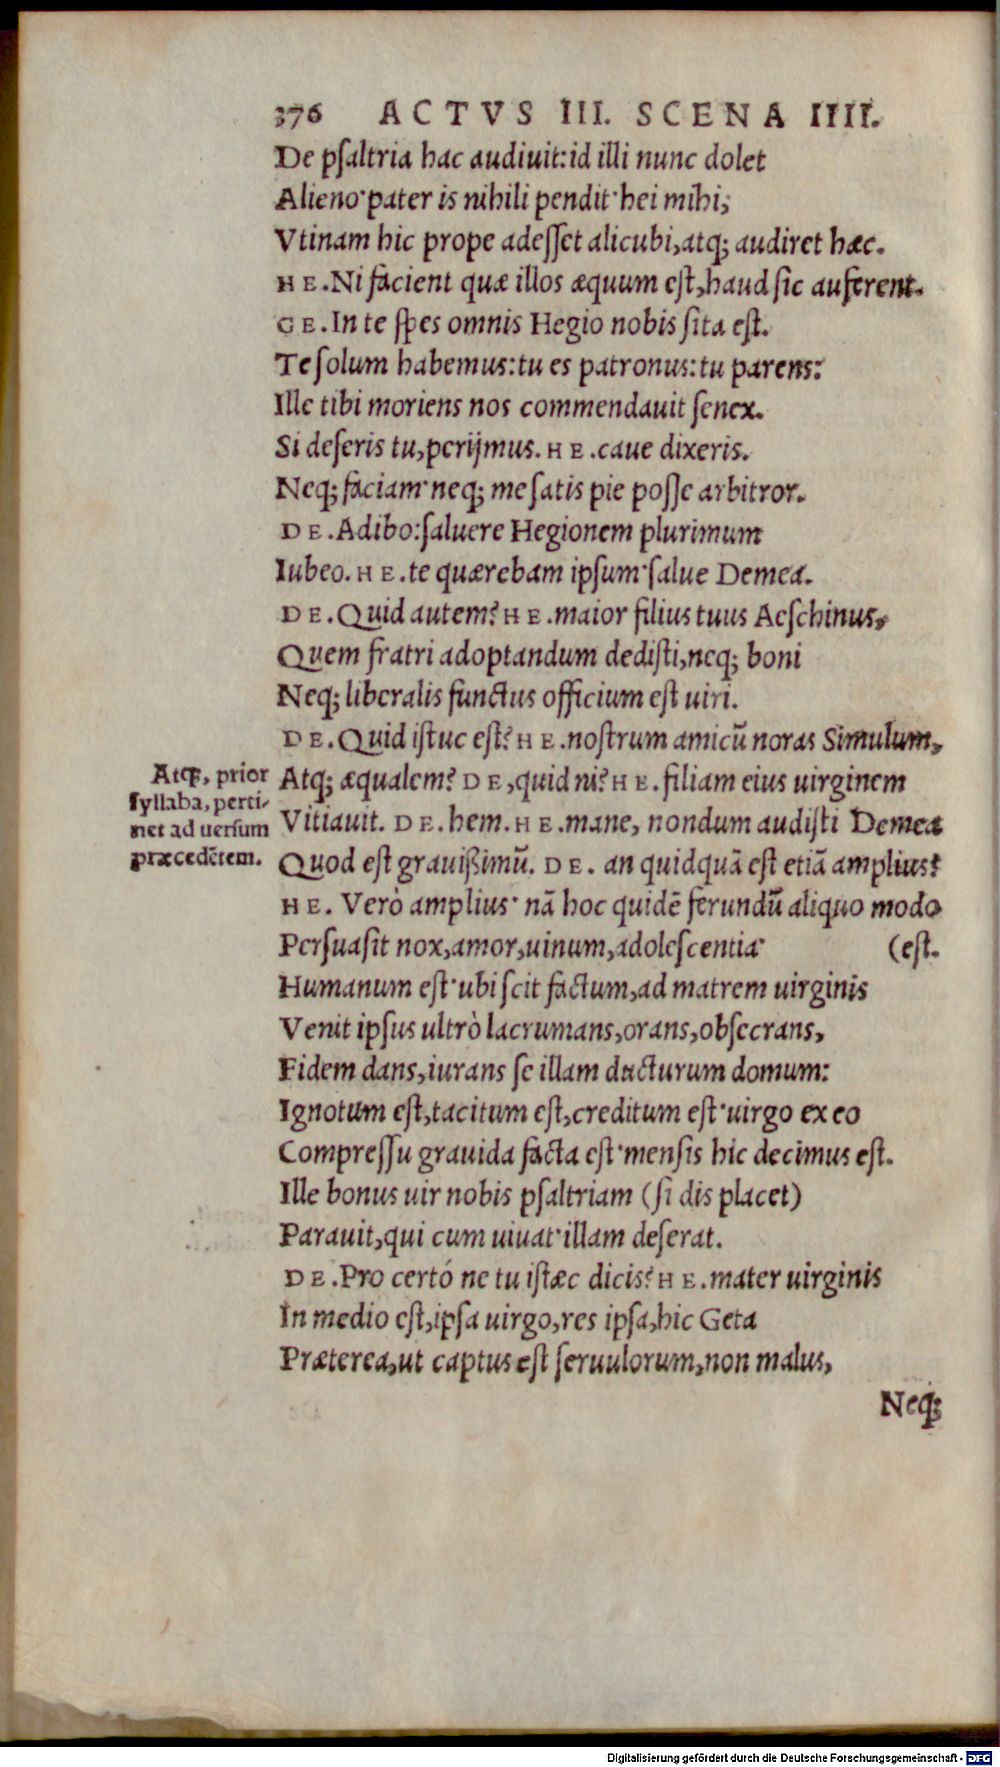 376 ACTVS III. SCENA IIII.
De psaltria hac audiuit: id illi nunc dolet
Alieno· pater is nihili pendit· hei mihi;
Vtinam hic prope adesset alicubi, atq; audiret hæc.
HE. Ni facient quæ illos æquum est, haud sic auferent.
GE. In te spes omnis Hegio nobis sita est.
Te solum habemus: tu es patronus: tu parens:
Ille tibi moriens nos commendauit senex.
Si deseris tu, perijmus. HE. caue dixeris.
Neq; faciam· neq; me satis pie posse arbitror.
DE. Adibo: saluere Hegionem plurimum
Iubeo. HE. te quærebam ipsum· salue Demea.
DE. Quid autem? HE. maior filius tuus Aeschinus,
Quem fratri adoptandum dedisti, neq; boni
Neq; liberalis functus officium est uiri.
DE. Quid istuc est? HE. nostrum amicū noras Simulum,
Atq; æqualem? DE, quid ni? HE. filiam eius uirginem
Vitiauit. DE. hem. HE. mane, nondum audisti Demea
Quod est grauißimū. DE. an quidquā est etiā amplius?
HE. Verò amplius· nā hoc quidē ferundū aliquo modo
Persuasit nox, amor, uinum, adolescentia· (est.
Humanum est· ubi scit factum, ad matrem uirginis
Venit ipsus ultrò lacrumans, orans, obsecrans,
Fidem dans, iurans se illam ducturum domum:
Ignotum est, tacitum est, creditum est· uirgo ex eo
Compressu grauida facta est· mensis hic decimus est.
Ille bonus uir nobis psaltriam (si dis placet)
Parauit, qui cum uiuat· illam deserat.
DE. Pro certó ne tu istæc dicis? HE. mater uirginis
In medio est, ipsa uirgo, res ipsa, hic Geta
Præterea, ut captus est seruulorum, non malus,
Neq;
Atq;, prior
syllaba, perti-
net ad uersum
præcedētem.
Digitalisierung gefördert durch die Deutsche Forschungsgemeinschaft - DFG